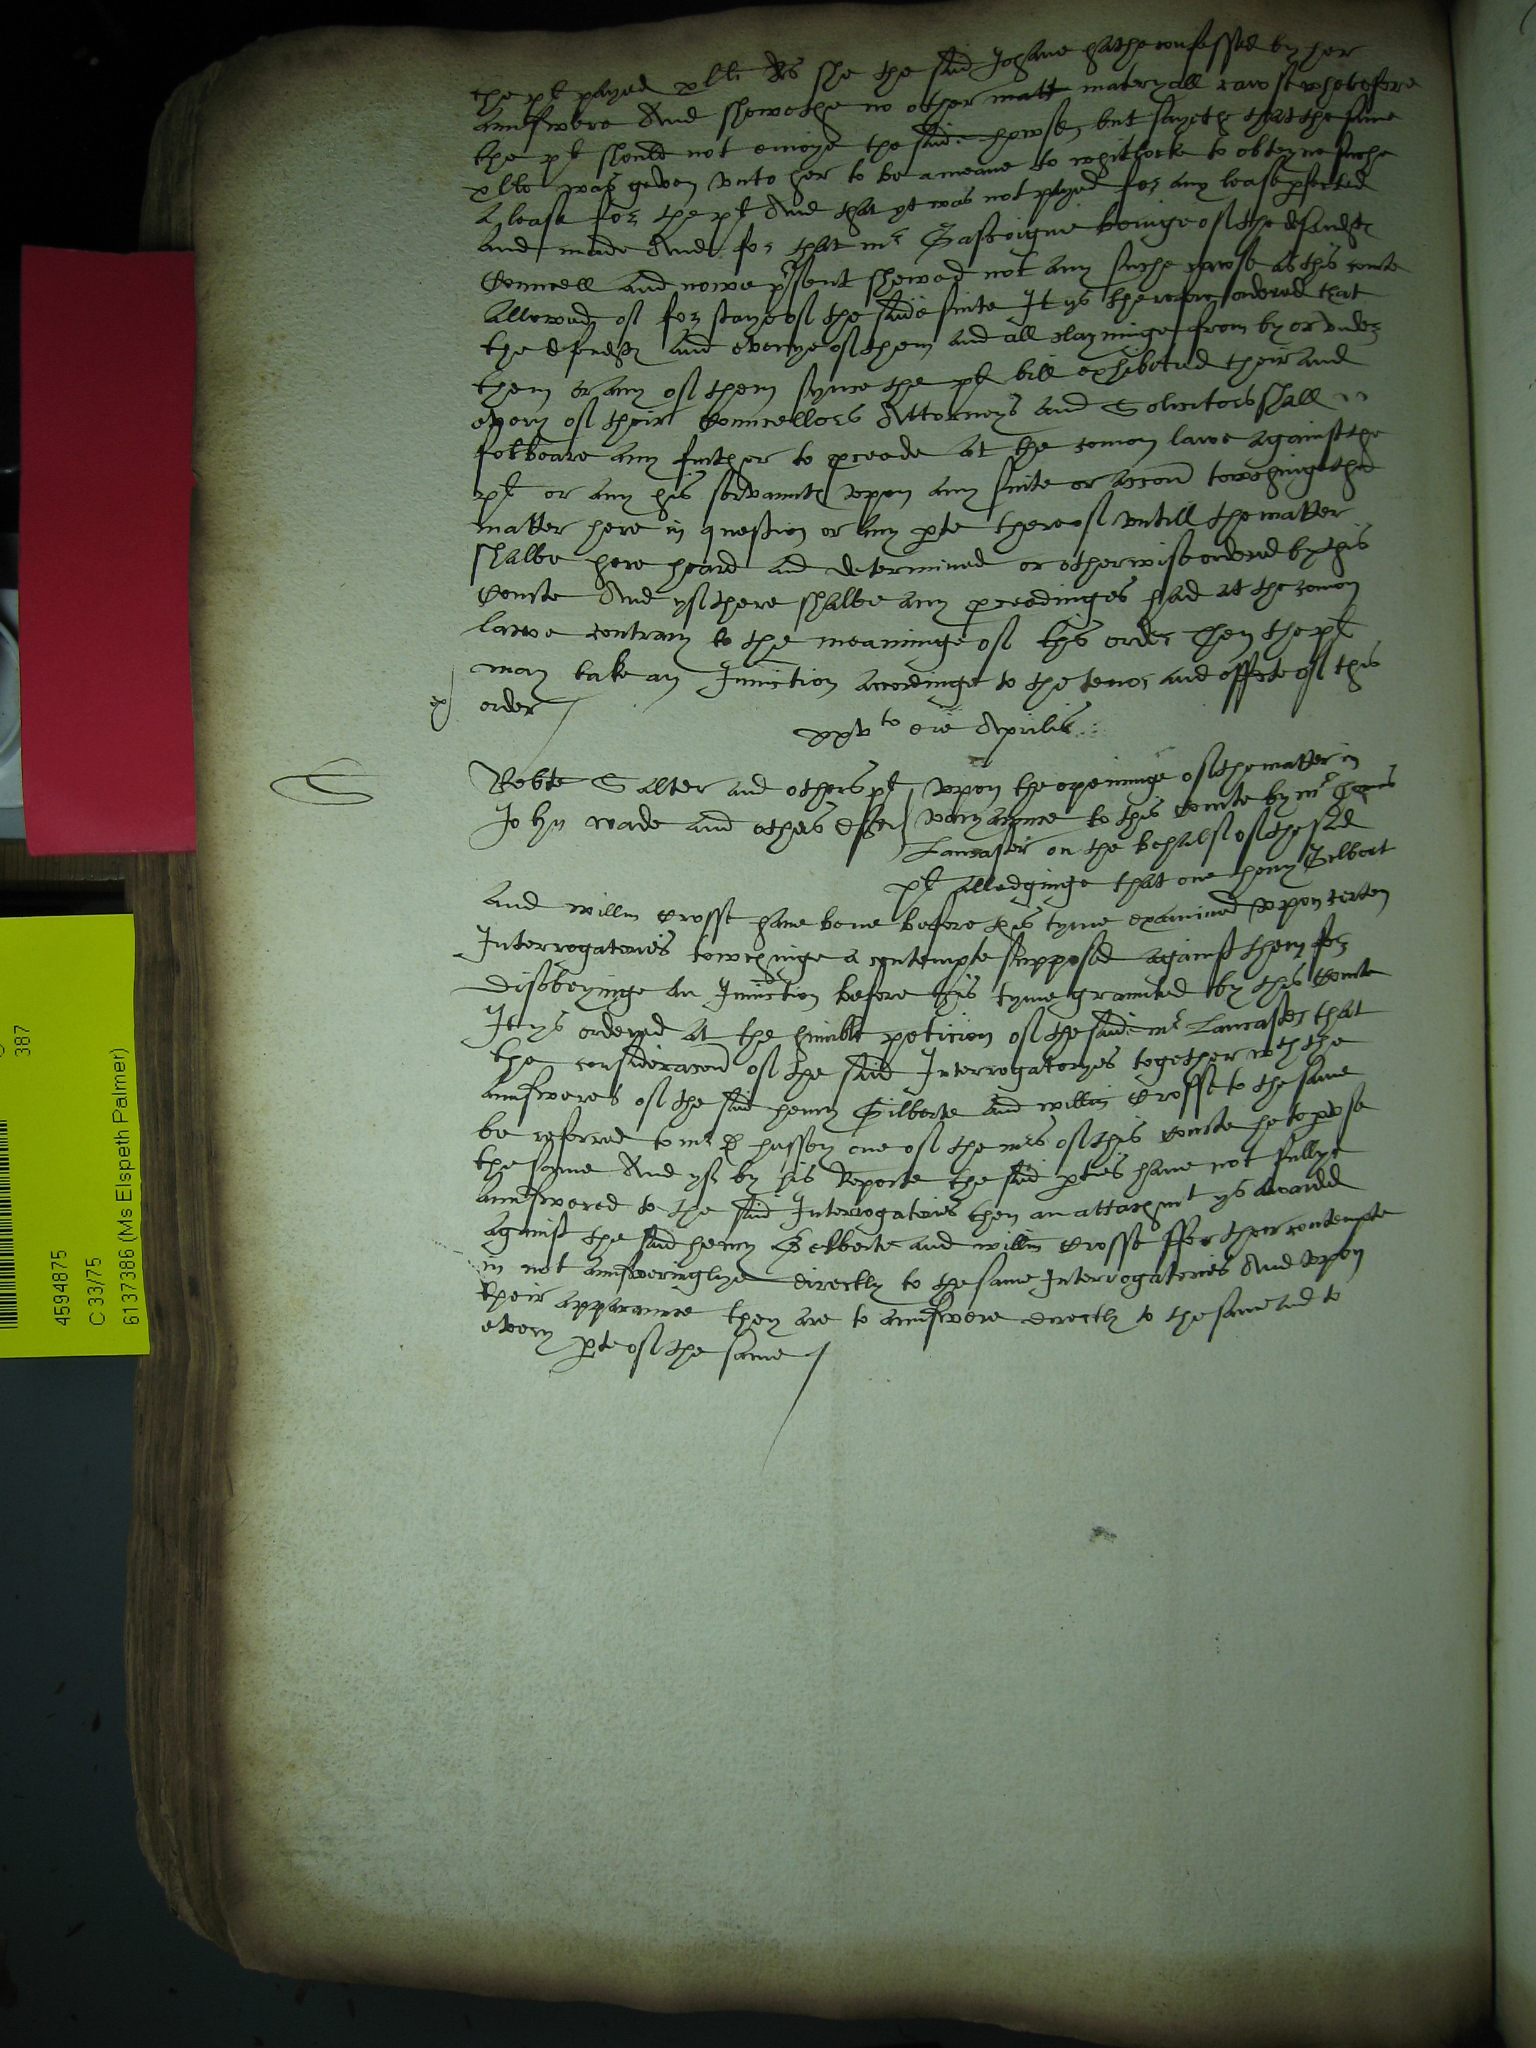 the pł payed xlli As she the said Johane hathe confessed by her
annswere And shewethe no other matt materyall cawse wherefore
the pł should not enioye the saide howse, but sayethe that the same
xlli was geven vnto her to be a meane to whitlocke to obteyne suche
a lease for the pł And that yt was not payed for any lease pfected
and made And for that mr Gascoigne beinge of the defendtes
Councell and nowe psent shewed not any suche cawse as this courte
allowed of for staye of the saide suite It ys therefore ordered that
the defendtes and euerye of them and all clayminge from by or vnder
them or any of them synce the pł bill exhibited their and
euery of their Councellors Attorneys and Solicitors shall
forbeare any further to pceede at the comon lawe against the
pł or any his servauntes vpon any suite or accon towchinge the
matter here in question or any pte thereof vntill the matter
shalbe here heard and determined or otherwise ordered by this
Courte And yf there shalbe any pceedinges had at the comon
lawe contrary to the meaninge of this order Then the pł
may take an Iniunction accordinge to the tenor and effecte of this
order
xxvto die Aprilis
Robte Salter and others pł
John wade and others deftes
vpon the openinge of the matter in
varyaunce to this Courte by mr Thoms
Lancaster on the behalf of the said
pł alledginge that one henry Gilbert
and willm Crosse haue bene before this tyme examined vpon certen
Interrogatories towchinge a contempte supposed against them for
disobeyinge an Iniunction before this tyme graunted by this Courte
It ys ordered at the humble peticion of the saide mr Lancaster that
the consideracon of the said Interrogatoryes together wth the
annsweres of the said henry Gilberte and willm Crosse to the same
be referred to mr D hussey one of the mrs of this Courte he to pvse
the same And yf by his Reporte the said pties haue not fullye
annswered to the said Interrogatories then an attachmt ys awarded
against the said henry Gilberte and willm Crosse ffor their contempte
in not annsweringe directly to the same Interrogatories And vpon
their apparaunce they are to annswere directly to the same and to
euery pte of the same
387
4594875
C 33/75
6137386 (Ms Elspeth Palmer)